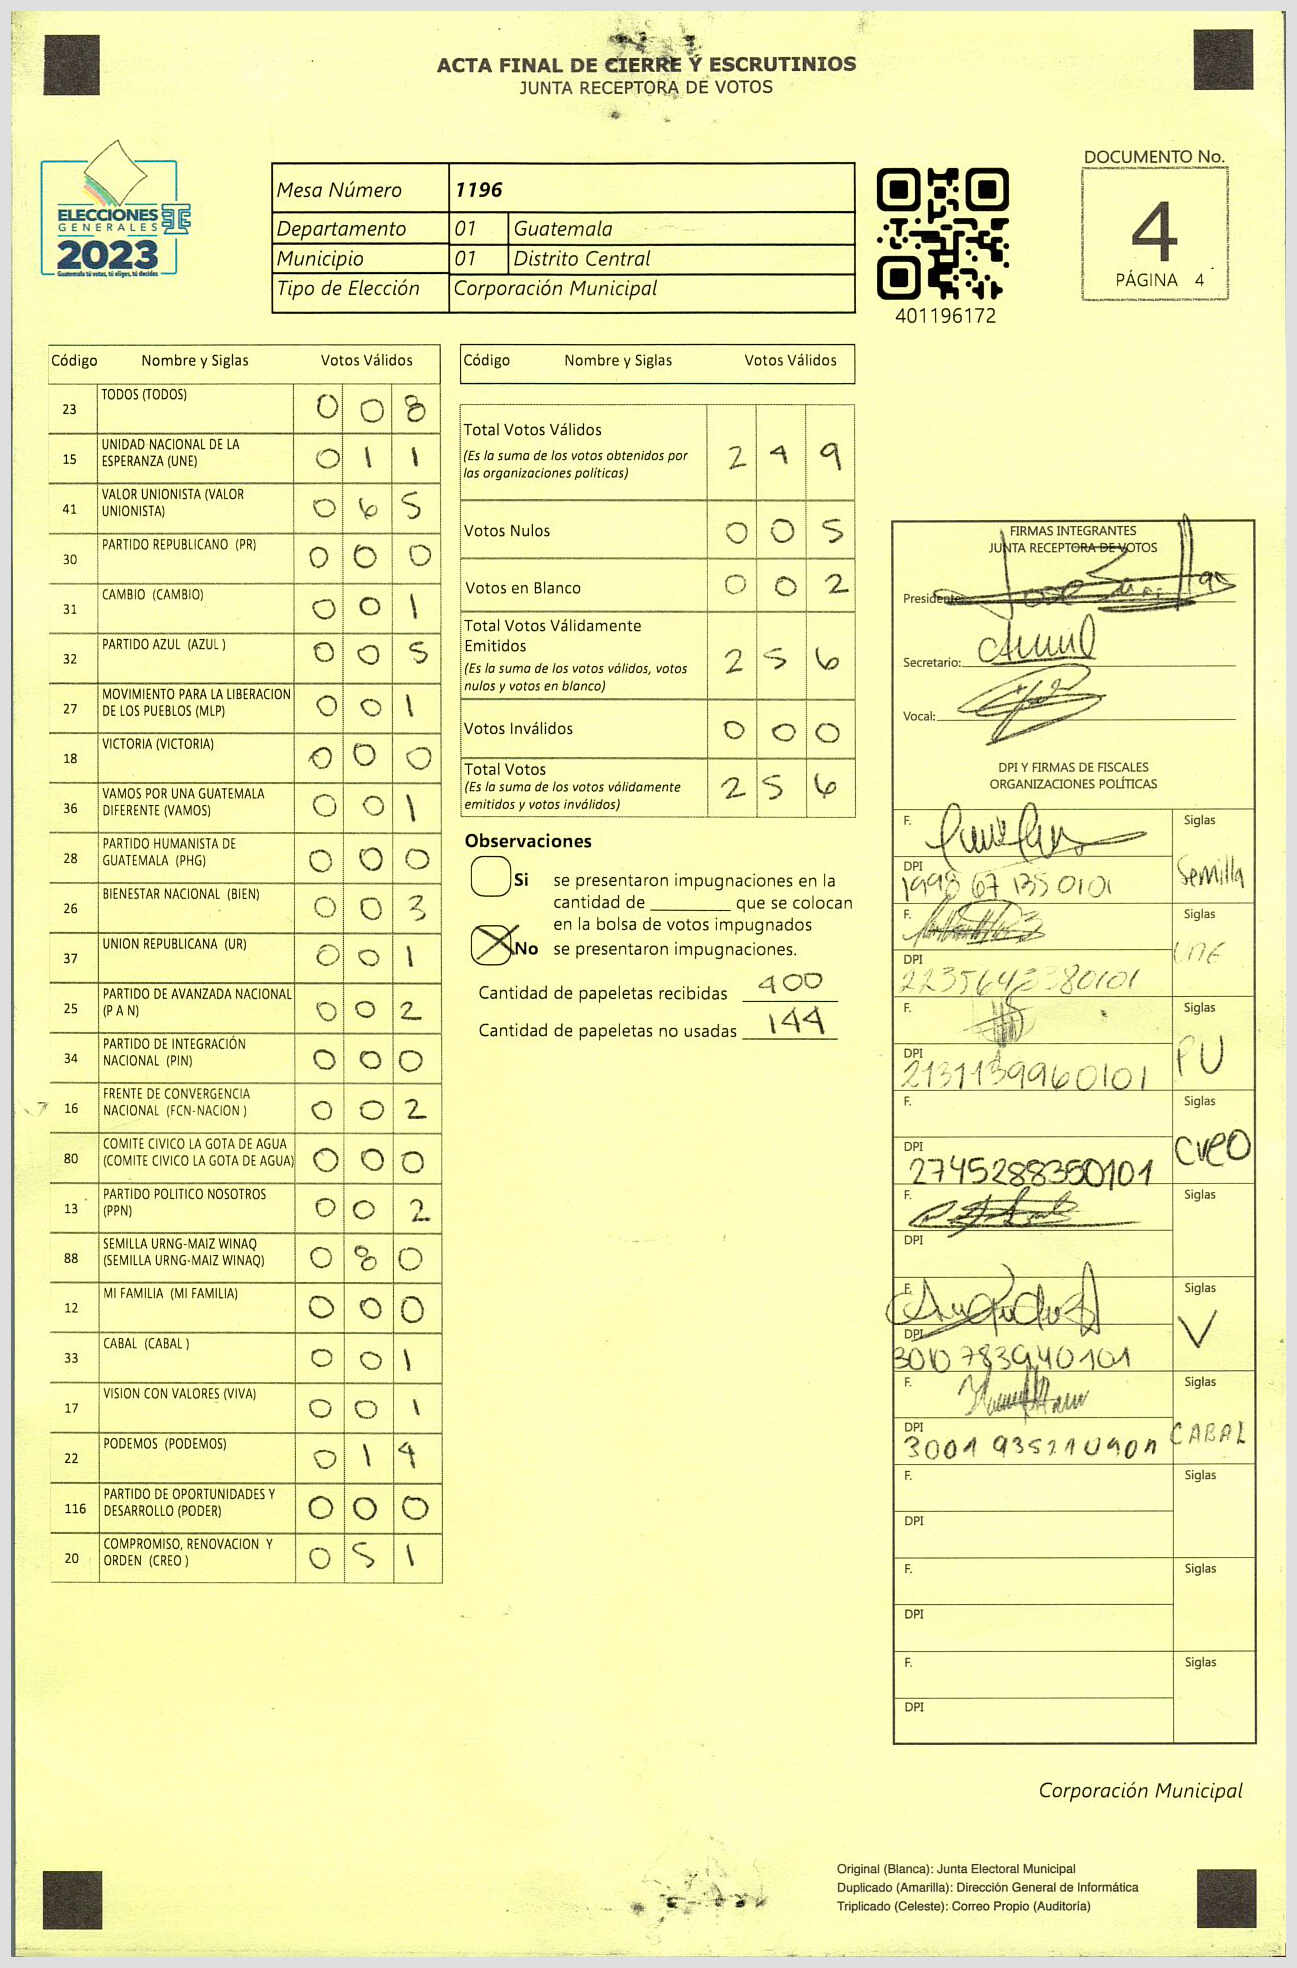 ACTA FINAL DE CIERRE Y ESCRUTINIOS
JUNTA RECEPTORA DE VOTOS
ELECCIONES
GENERALES
2023
Guatemala tú votas, tú eliges, tú decides
Mesa Número 1196
Departamento 01 Guatemala
Municipio 01 Distrito Central
Tipo de Elección Corporación Municipal
401196172
DOCUMENTO No.
4
PÁGINA 4
Código Nombre y Siglas Votos Válidos
23 TODOS (TODOS) 0 0 8
15 UNIDAD NACIONAL DE LA
ESPERANZA (UNE) 0 1 1
41 VALOR UNIONISTA (VALOR
UNIONISTA) 0 6 5
30 PARTIDO REPUBLICANO (PR) 0 0 0
31 CAMBIO (CAMBIO) 0 0 1
32 PARTIDO AZUL (AZUL ) 0 0 5
27 MOVIMIENTO PARA LA LIBERACION
DE LOS PUEBLOS (MLP) 0 0 1
18 VICTORIA (VICTORIA) 0 0 0
36 VAMOS POR UNA GUATEMALA
DIFERENTE (VAMOS) 0 0 1
28 PARTIDO HUMANISTA DE
GUATEMALA (PHG) 0 0 0
26 BIENESTAR NACIONAL (BIEN) 0 0 3
37 UNION REPUBLICANA (UR) 0 0 1
25 PARTIDO DE AVANZADA NACIONAL
(P A N) 0 0 2
34 PARTIDO DE INTEGRACIÓN
NACIONAL (PIN) 0 0 0
16 FRENTE DE CONVERGENCIA
NACIONAL (FCN-NACION ) 0 0 2
80 COMITE CIVICO LA GOTA DE AGUA
(COMITE CIVICO LA GOTA DE AGUA) 0 0 0
13 PARTIDO POLITICO NOSOTROS
(PPN) 0 0 2
88 SEMILLA URNG-MAIZ WINAQ
(SEMILLA URNG-MAIZ WINAQ) 0 8 0
12 MI FAMILIA (MI FAMILIA) 0 0 0
33 CABAL (CABAL ) 0 0 1
17 VISION CON VALORES (VIVA) 0 0 1
22 PODEMOS (PODEMOS) 0 1 4
116 PARTIDO DE OPORTUNIDADES Y
DESARROLLO (PODER) 0 0 0
20 COMPROMISO, RENOVACION Y
ORDEN (CREO ) 0 5 1
Código Nombre y Siglas Votos Válidos
Total Votos Válidos
(Es la suma de los votos obtenidos por
las organizaciones politicas) 2 4 9
Votos Nulos 0 0 5
Votos en Blanco 0 0 2
Total Votos Válidamente
Emitidos
(Es la suma de los votos válidos, votos
nulos y votos en blanco) 2 5 6
Votos Inválidos 0 0 0
Total Votos
(Es la suma de los votos válidamente
emitidos y votos inválidos) 2 5 6
Observaciones
Si se presentaron impugnaciones en la
cantidad de ________ que se colocan
en la bolsa de votos impugnados
No se presentaron impugnaciones.
Cantidad de papeletas recibidas 400
Cantidad de papeletas no usadas 144
FIRMAS INTEGRANTES
JUNTA RECEPTORA DE VOTOS
Presidente:
Secretario:
Vocal:
DPI Y FIRMAS DE FISCALES
ORGANIZACIONES POLÍTICAS
F. Siglas
DPI Semilla
1998 67 135 0101
F. Siglas
DPI UNE
F. Siglas
DPI PU
2131139960101
F. Siglas
DPI CREO
2745288350101
F. Siglas
DPI
F. Siglas
DPI V
3010 783940101
F. Siglas
DPI CABAL
F. Siglas
DPI
F. Siglas
DPI
F. Siglas
DPI
Corporación Municipal
Original (Blanca): Junta Electoral Municipal
Duplicado (Amarilla): Dirección General de Informática
Triplicado (Celeste): Correo Propio (Auditoría)